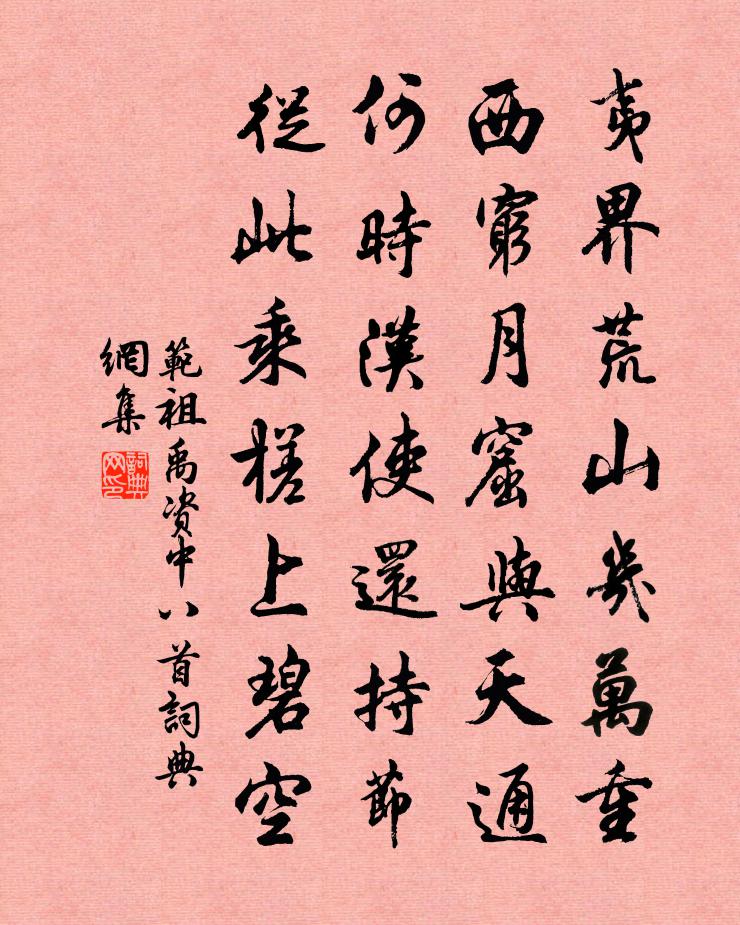 夷界荒山幾萬重
西窮月窟與天通
何時漢使還持節
從此乘槎上碧空
範祖禹資中八首詞典
網集
詞典網印